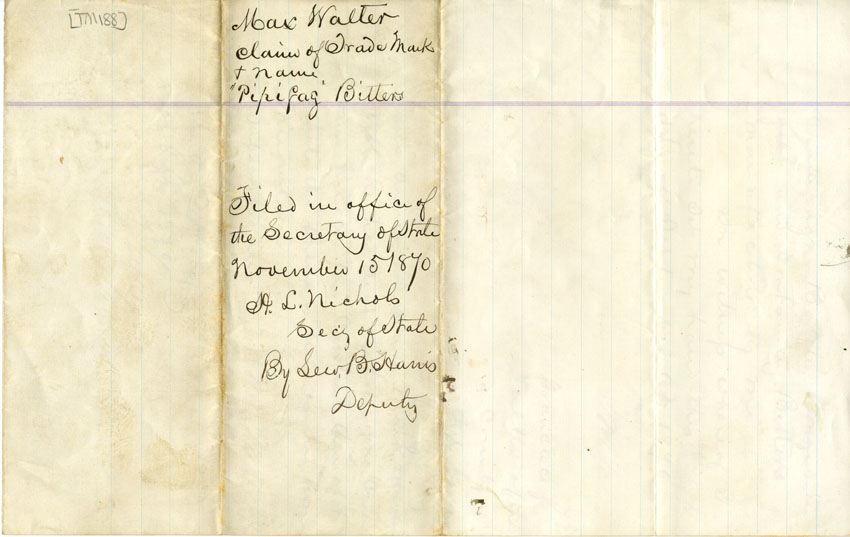 [TM188]
Max Walter
claim of Trade Mark
+ name
"Pipifag" Bitters
Filed in office of
the Secretary of State
November 15 1870
H. L. Nichols
Secy of State
By Lew. B. Harris
Deputy